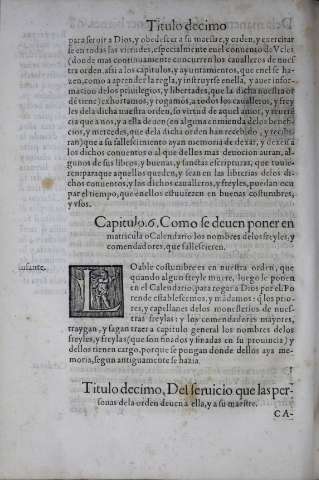 Titulo decimo
para seruir a Dios, y obedescer a su maestre, y orden, y exercitar
se en todas las virtudes, especialmente en el conuento de Vcles
(donde mas continuamente concurren los caualleros de nues
tra orden, assi a los capitulos, y ayuntamientos, que enel se ha-
zen, como a aprender la regla, y instruyrse en ella, y auer infor-
macion de los priuilegios, y libertades, que la dicha nuestra or
dē tiene) exhortamos, y rogamos, a todos los caualleros, y frey
les dela dicha nuestra orden, so virtud de aquel amor, y reuerē
cia que a nos, y a ella deuen (en alguna enmienda delos benefi-
cios, y mercedes, que dela dicha orden han recebido, y recibi-
ran) que a su fallescimiento ayan memoria de dexar, y dexen a
los dichos conuentos o al que dellos mas deuocion auran, al-
gunos de sus libros, y buenas, y sanctas escripturas, que touie-
ren para que aquellos queden, y sean en las librerias delos di-
chos conuentos, y los dichos caualleros, y freyles, puedan occu
par el tiempo, que enellos estuuieren en buenas costumbres,
y vsos.
Capitulo.6. Como se deuen poner en
matricula o Calendario los nombres delos freyles, y
comendadores, que fallescieren.
Infante.
LOable costumbre es en nuestra orden, que
quando algun freyle muere, luego le ponen
en el Calendario, para rogar a Dios por el. Po
rende establescemos, y mādamos: q̄ los prio-
res, y capellanes delos monesterios de nues-
tras freylas: y los comendadores mayores,
traygan, y fagan traer a capitulo general los nombres delos
freyles, y freylas (que son finados y finadas en su prouincia) y
dellos tienen cargo, porque se pongan donde dellos aya me-
moria, segun antiguamente se hazia.
Titulo decimo, Del seruicio que las per-
sonas dela orden deuen a ella, y a su maestre.
CA-